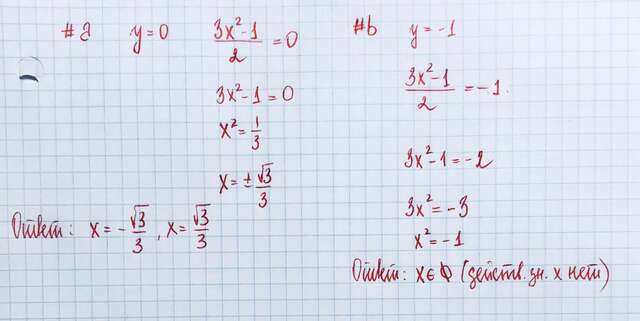 #a y=0 (3x²-1)/2 = 0
3x²-1=0
x²=1/3
x=±√3/3
Ответ: x=-√3/3, x=√3/3
#b y=-1
(3x²-1)/2 = -1.
3x²-1=-2
3x²=-3
x²=-1
Ответ: x∈Φ (действ. зн. x нет)